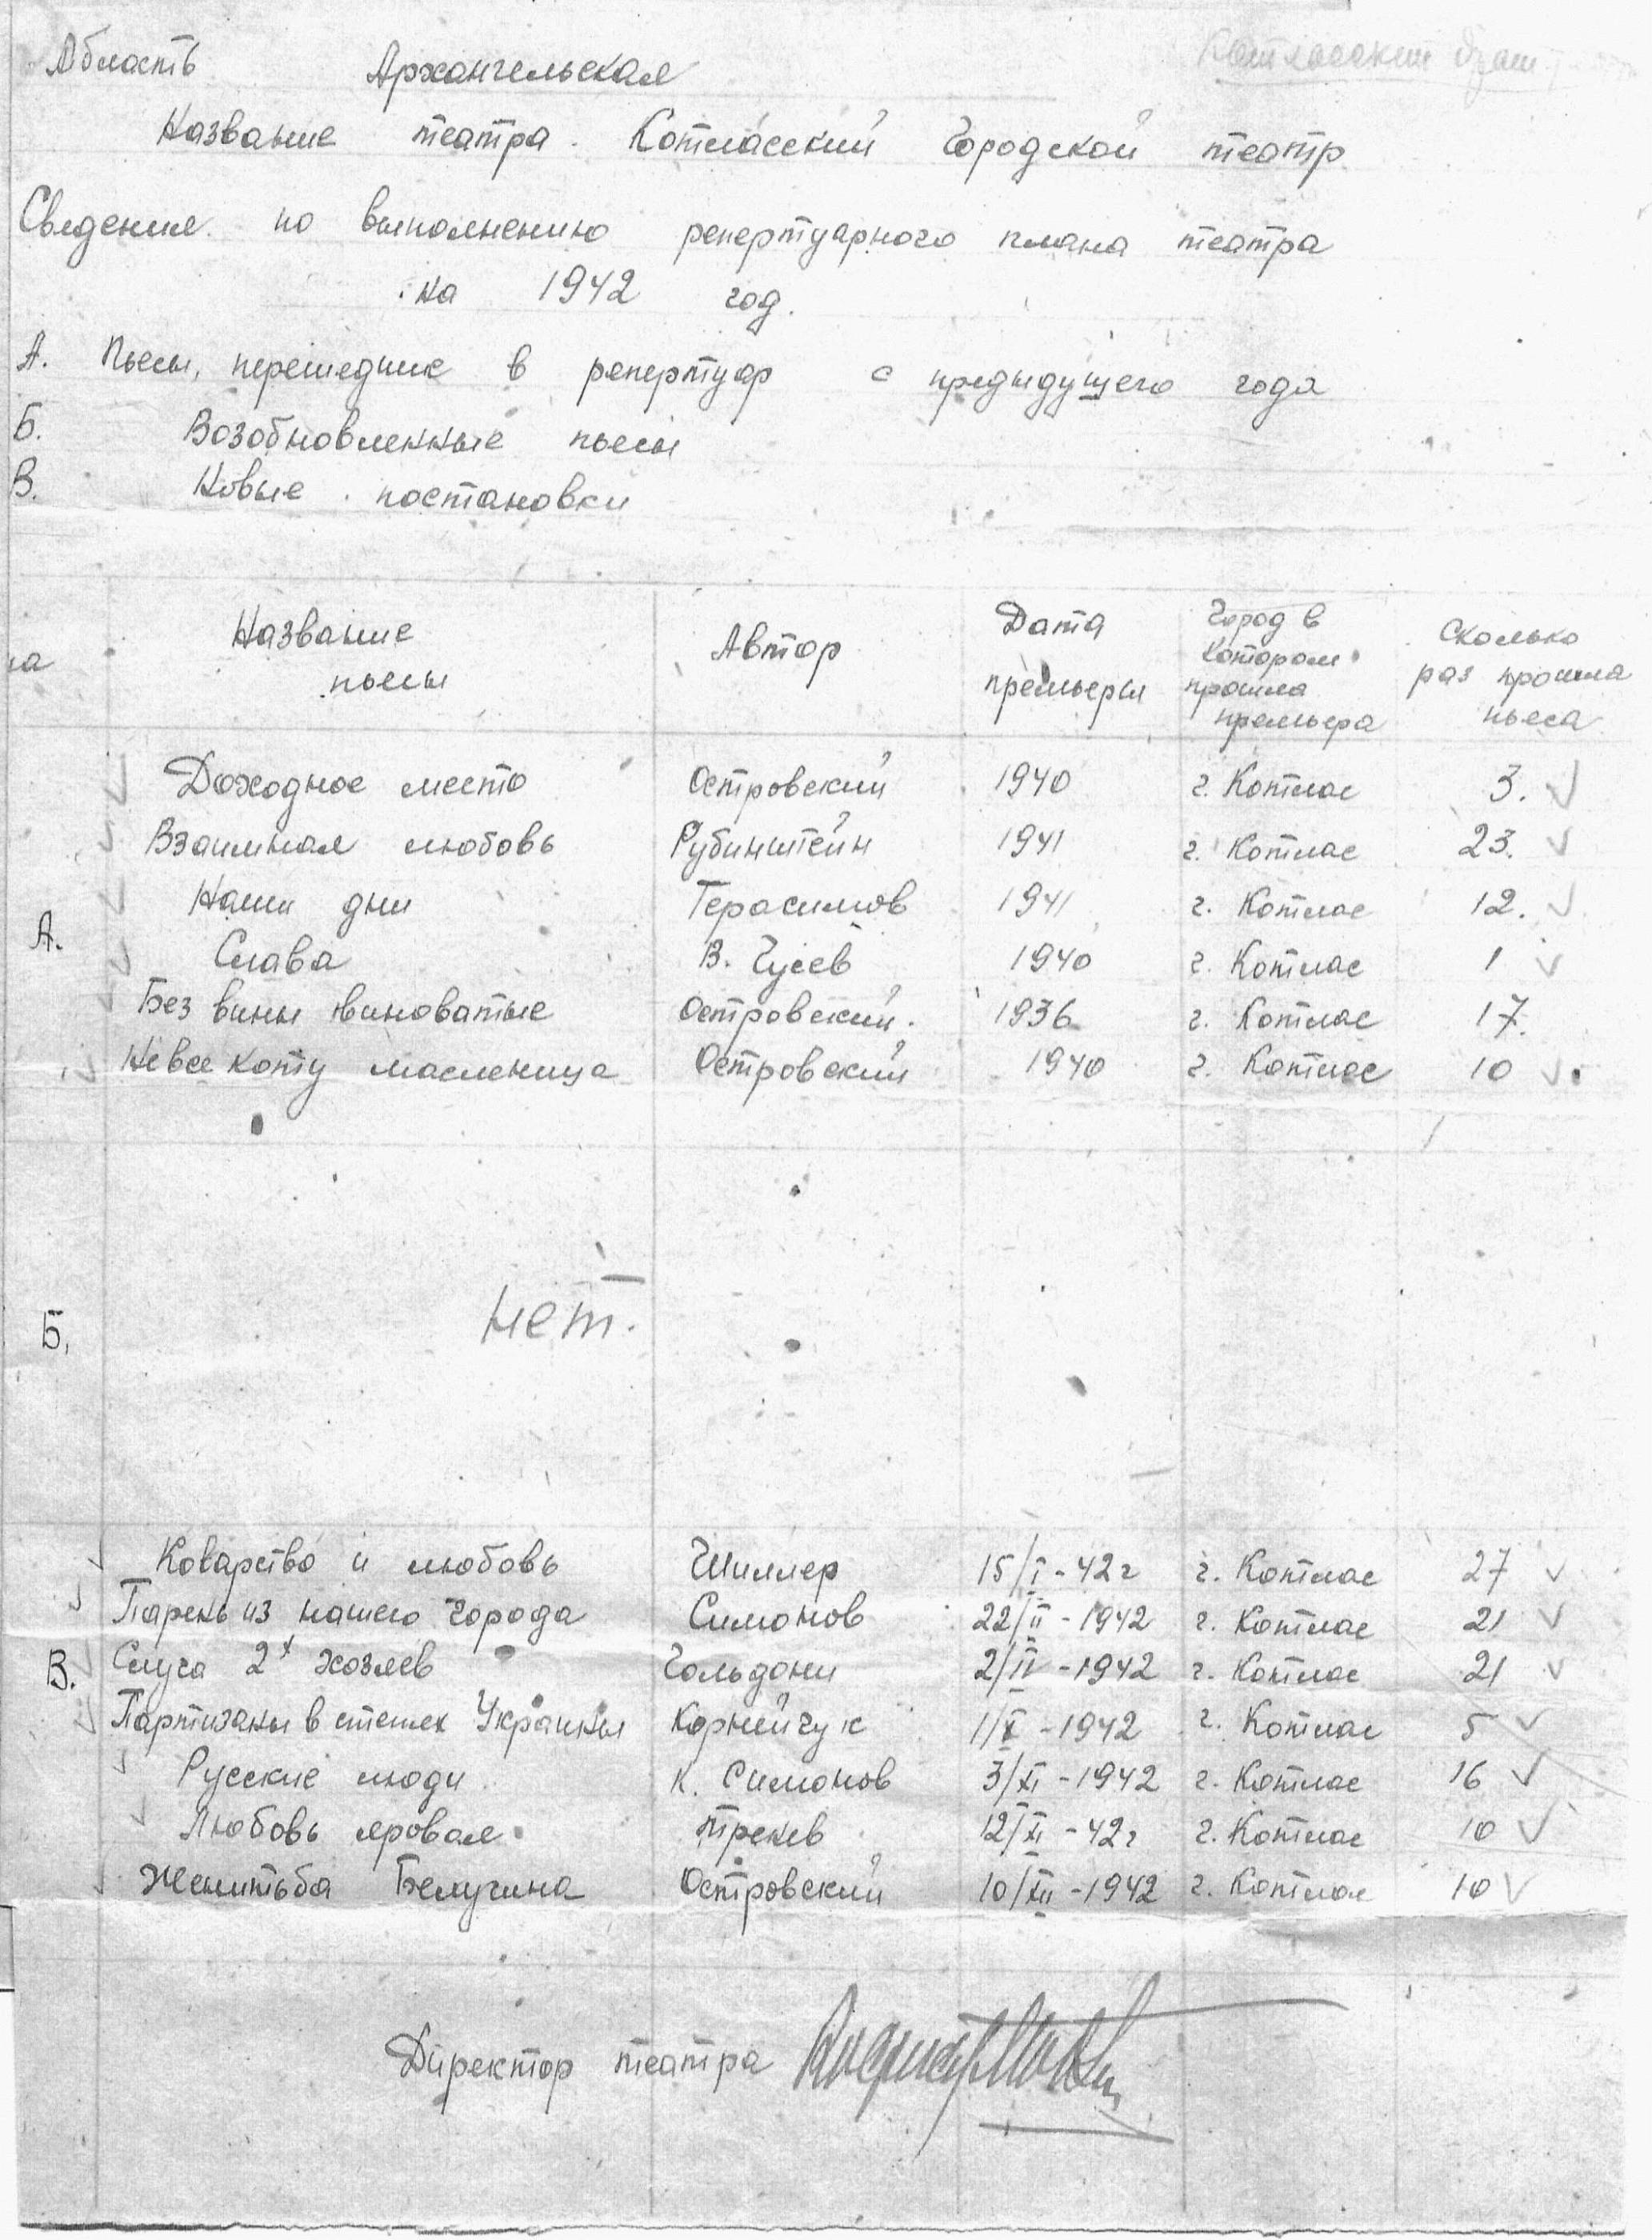 Котласский драм.
Область Архангельская
Название театра. Котласский Городской театр
Сведения по выполнению репертуарного плана театра
на 1942 год.
А. Пьесы, перешедшие в репертуар с предыдущего года
Б. Возобновленные пьесы
В. Новые постановки
Название пьесы Автор Дата премьеры Город в котором прошла премьера Сколько раз прошла пьеса
А.
Доходное место Островский 1940 г. Котлас 3.
Взаимная любовь Рубинштейн 1941 г. Котлас 23.
Наши дни Герасимов 1941 г. Котлас 12.
Слава В. Гусев 1940 г. Котлас 1
Без вины виноватые Островский. 1936 г. Котлас 17.
Не все коту масленица Островский 1940 г. Котлас 10
Б. нет.
В.
Коварство и любовь Шиллер 15/I - 42 г г. Котлас 27
Парень из нашего города Симонов 22/II - 1942 г. Котлас 21
Слуга 2х хозяев Гольдони 2/IV - 1942 г. Котлас 21
Партизаны в степях Украины Корнейчук 1/X - 1942 г. Котлас 5
Русские люди К. Симонов 3/XI - 1942 г. Котлас 16
Любовь яровая Тренев 12/XI - 42 г г. Котлас 10
Женитьба Белугина Островский 10/XII - 1942 г. Котлас 10
Директор театра